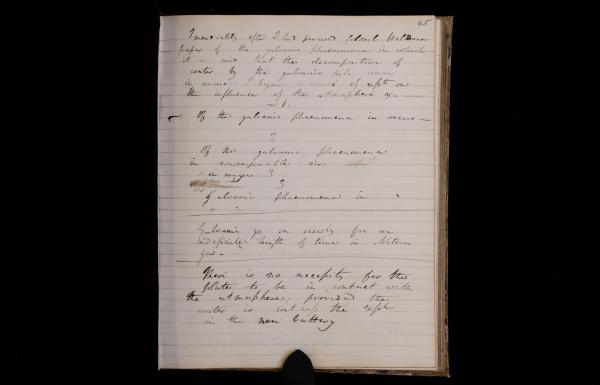 65
Immediately after I had perused Colonel Haldanes
paper of the galvanic phaenomena in which
it is said that the decomposition of
water by the galvanic pile ceases
in vacuo I began a series of expts on
the influence of the atmosphere on
1.
Of the galvanic phaenomena in vacuo —
2
Of the galvanic phaenomena
in nonrespirable airs
in oxygene 3
3
Galvanic Phaenomena in
Galvanic go on slowly for an
indefinite length of time in Nitrous
gas —
There is no necessity for the
plates to be in contact with
the atmosphere provided the
water is
in the new battery